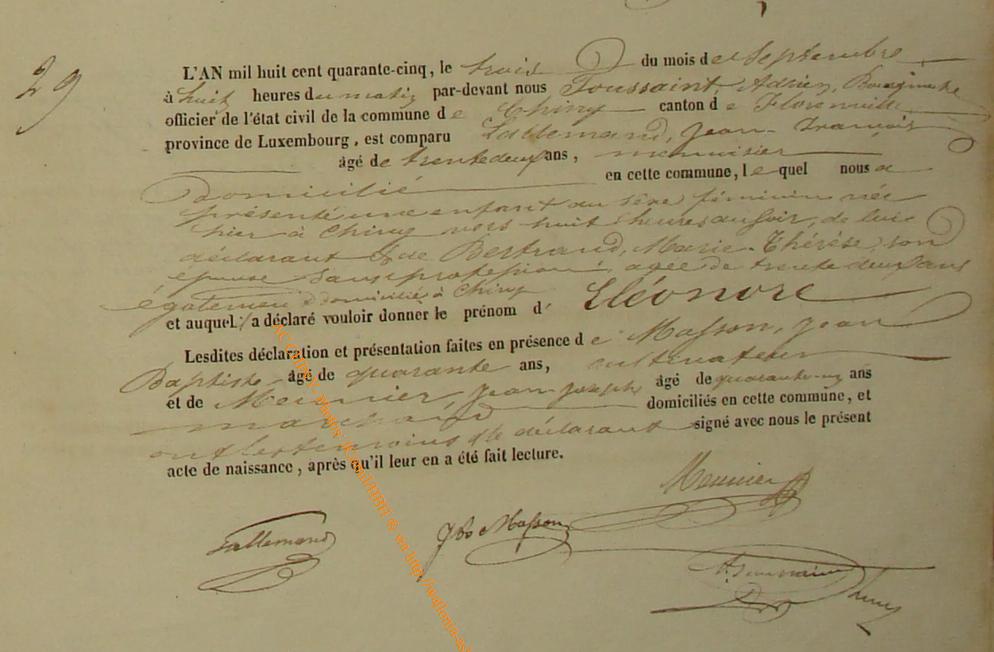 29
L'AN mil huit cent quarante-cinq, le trois du mois de Septembre
à huit heures du matin par-devant nous Toussaint, Adrien, Bourgmestre
officier de l'état civil de la commune de Chiny canton de Florenville
province de Luxembourg, est comparu Lallemand, Jean-François
âgé de trente deux ans, menuisier
domicilié en cette commune, lequel nous a
présenté une enfant du sexe féminin née
hier à Chiny vers huit heures du soir, de lui
déclarant & de Bertrand, Marie-Thérèse, son
épouse sans profession, agée de trente deux ans
également domiciliée à Chiny
et auquel a déclaré vouloir donner le prénom d' Eléonore
Lesdites déclaration et présentation faites en présence de Masson, Jean
Baptiste âgé de quarante ans, cultivateur
et de Meunier, Jean Joseph âgé de quarante ans
marchand domiciliés en cette commune, et
ont les temoins & le déclarant signé avec nous le présent
acte de naissance, après qu'il leur en a été fait lecture.
Meunier
Lallemand JB Masson
A. Toussaint